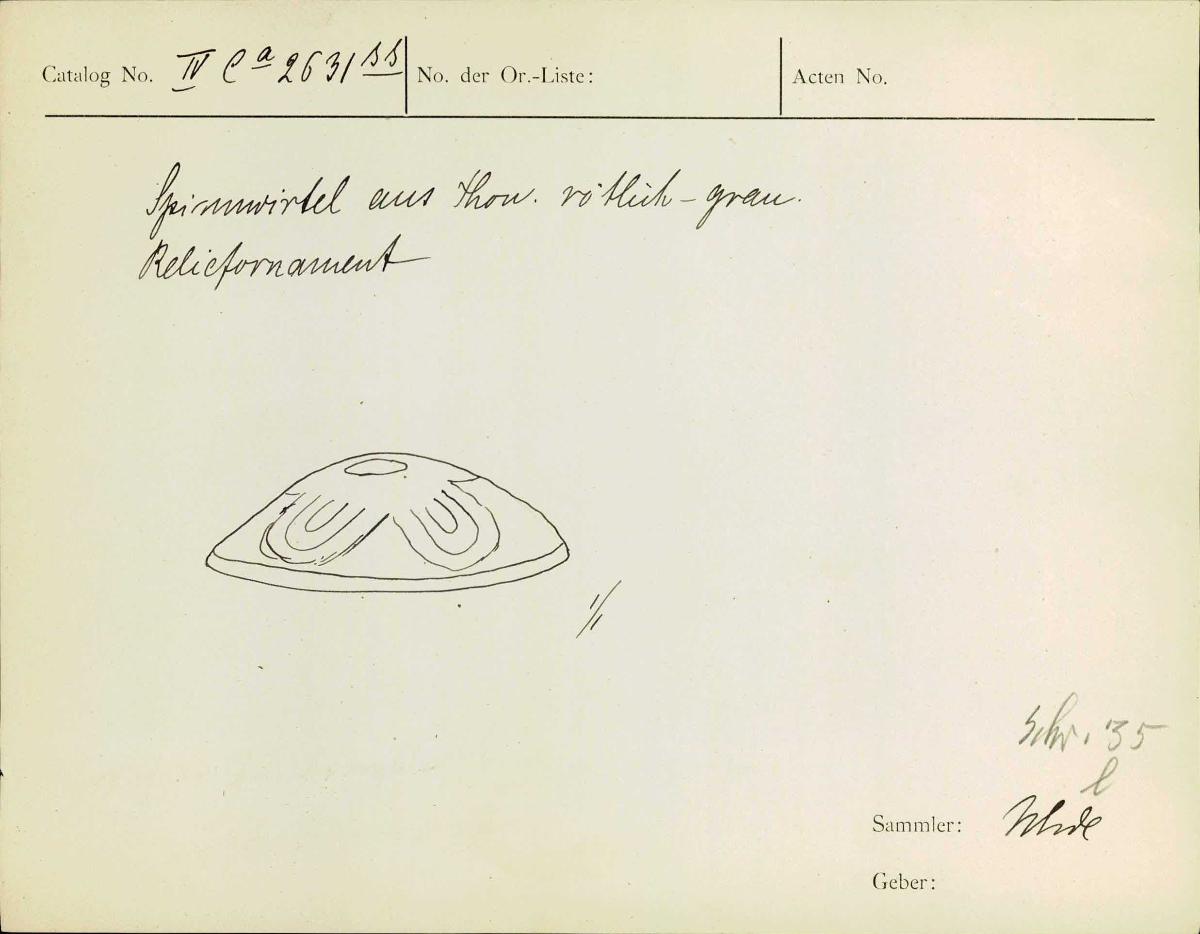 Catalog No. IV Ca 2631 ss No. der Or.-Liste: Acten No.
Spinnwirtel aus Thon. rötlich-grau.
Reliefornament
1/1
Schr. 35
l
Sammler: Uhde
Geber: